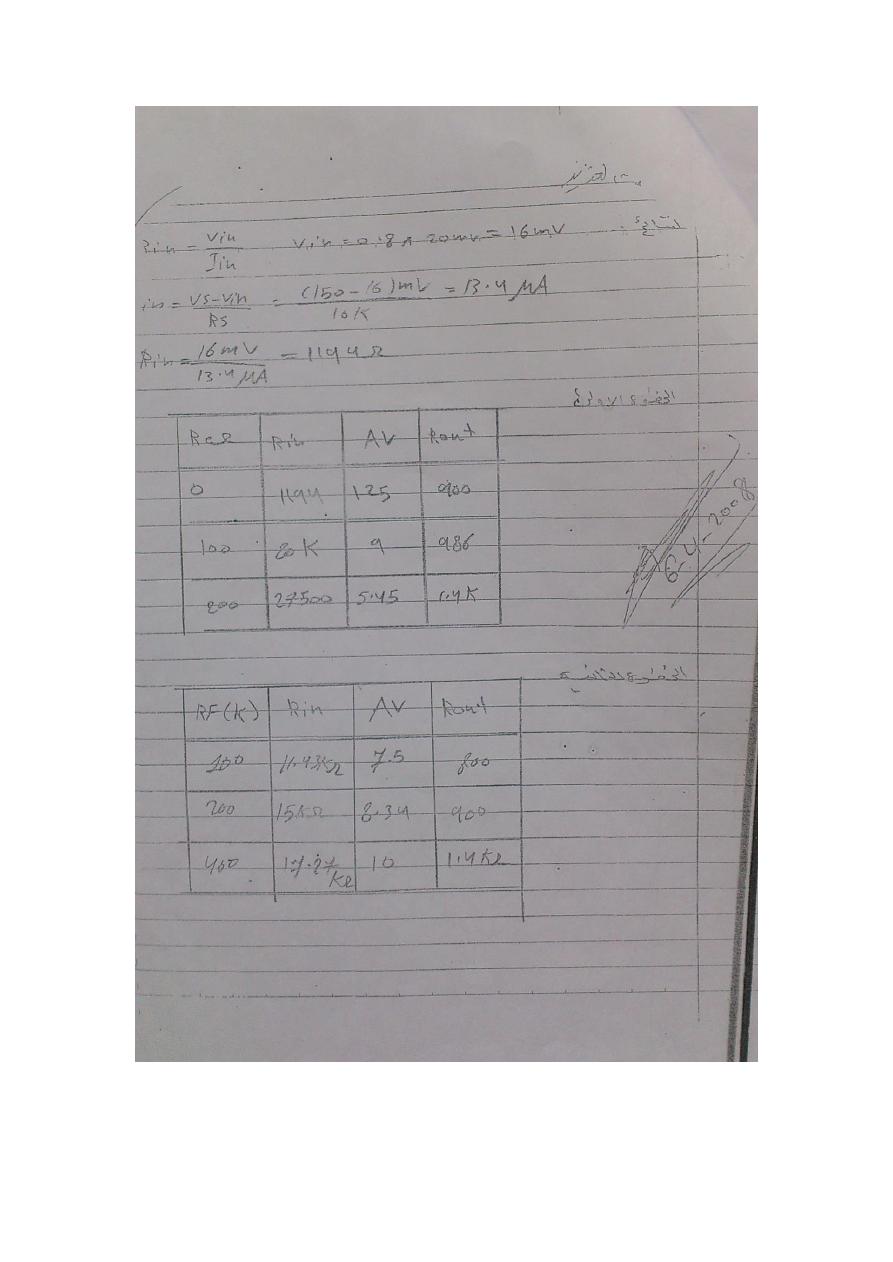 النتائج:
Rin = Vin / Iin    Vin = 0.8 * 20mv = 16mV
in = VS-Vin / RS = (150-16)mV / 10K = 13.4 μA
Rin = 16mV / 13.4 μA = 1194 Ω
الخطوة الاولى
Rin AV Rout
0 1194 125 900
100 20K 9 986
200 27500 5.45 1.4K
6-4-2008
الخطوة الثانية
RF(K) Rin AV Rout
100 11.43KΩ 7.5 800
200 15KΩ 8.34 900
400 17.27 KΩ 10 1.4KΩ